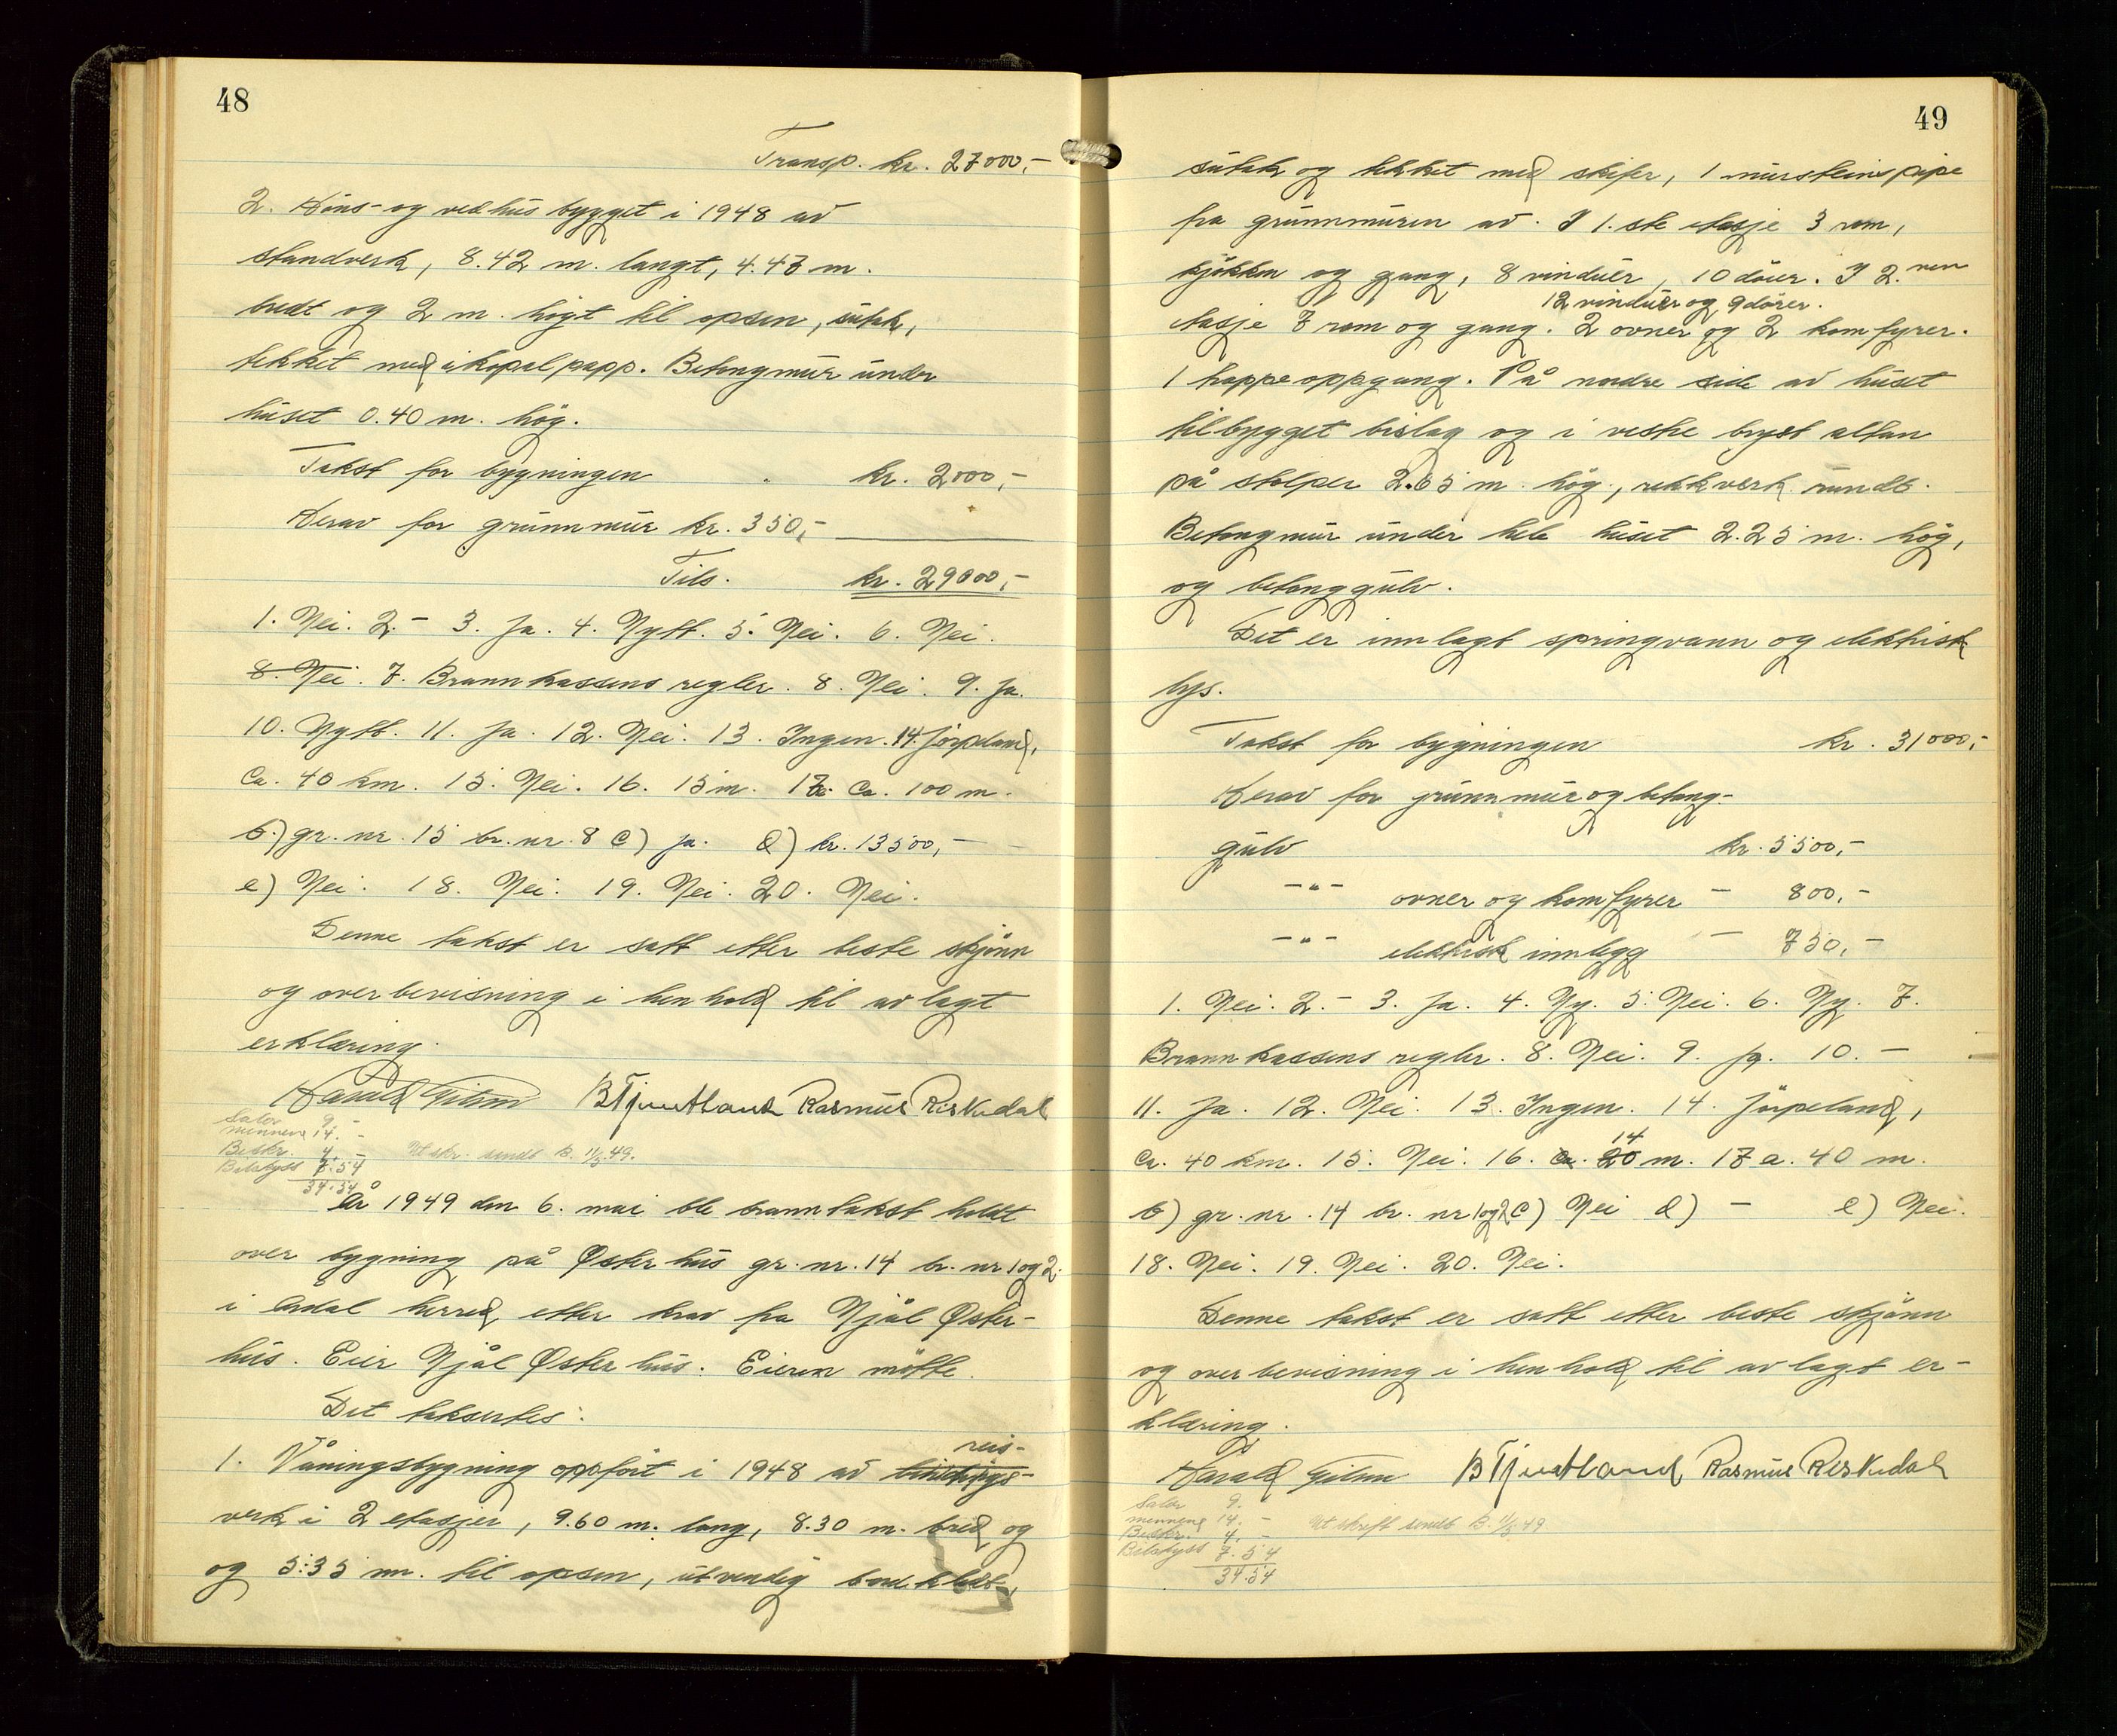 48
Transp. kr. 27000,-
2. Höns- og vedhus bygget i 1948 av
standverk, 8.42 m. langt, 4.43 m.
bredt og 2 m. högt til opsen, sutak,
tekket med ikopalpapp. Betongmur under
huset 0.40 m. hög.
Takst for bygningen kr. 2000,-
Herav for grunnmur kr. 350,-
Tils. kr. 29000,-
1. Nei. 2.- 3. Ja. 4. Nytt. 5. Nei. 6. Nei.
8. Nei. 7. Brannkassens regler. 8. Nei. 9. Ja.
10. Nytt. 11. Ja. 12. Nei. 13. Ingen. 14. Jörpeland,
Ca. 40 km. 15. Nei. 16. 15 m. 17a. Ca. 100 m.
b.) gr. nr. 15 br. nr. 8 c) Ja. d) kr. 13500,-
e) Nei. 18. Nei. 19. Nei. 20. Nei.
Denne takst er satt etter beste skjönn
og overbevisning i henhold til avlagt
erklæring.
Harald B Tjentland Rasmus Reskedal
9 -
mennene 14. -
Beskr. 4. - Utskr. sendt B. 11/5.49.
Bilskyss 7.54
34.54
År 1949 den 6. mai ble branntakst holdt
over bygning på Østerhus gr. nr. 14 br. nr 1 og 2
i Årdal herred etter krav fra Njål Øster-
hus. Eier Njål Østerhus. Eieren mötte.
Det taksertes:
reis-
1. Våningsbygning oppfört i 1948 av
verk i 2 etasjer, 9.60 m. lang, 8.30 m. bred og
og 5.35 m. til opsen, utvendig bordkledt,
49
sutak og tekket med skifer, 1 mursteinspipe
fra grunnmuren av. I 1.ste etasje 3 rom,
kjökken og gang, 8 vinduer, 10 dörer. I 2.nen
12 vinduer og 9 dörer.
etasje 7 rom og gang. 2 ovner og 2 komfyrer.
1 trappeoppgang. På nordre side av huset
tilbygget bislag og i vestre bryst altan
på stolper 2.65 m. hög, rekkverk rundt.
Betongmur under hele huset 2.25 m. hög,
og betonggulv.
Det er innlagt springvann og elektrisk
lys.
Takst for bygningen kr. 31000,-
Herav for grunnmur og betong-
gulv kr. 5500,-
-"- ovner og komfyrer - 800,-
-"- elektrisk innlegg - 750,-
1. Nei. 2.- 3. Ja. 4. Ny. 5. Nei. 6. Ny. 7.
Brannkassens regler. 8. Nei. 9. Ja. 10. -
11. Ja. 12. Nei. 13. Ingen. 14. Jörpeland,
14
Ca. 40 km. 15. Nei. 16. Ca. 20 m. 17a. 40 m.
b) gr. nr. 14 br. nr 1 og 2 c) Nei d) - e) Nei.
18. Nei. 19. Nei. 20. Nei.
Denne takst er satt etter beste skjönn
og overbevisning i henhold til avlagt er-
klæring.
Harald B Tjentland Rasmus Reskedal
9. -
mennene 14. - Utskrift sendt B. 11/5 49
Beskr. 4. -
Bilskyss 7.54
34.54